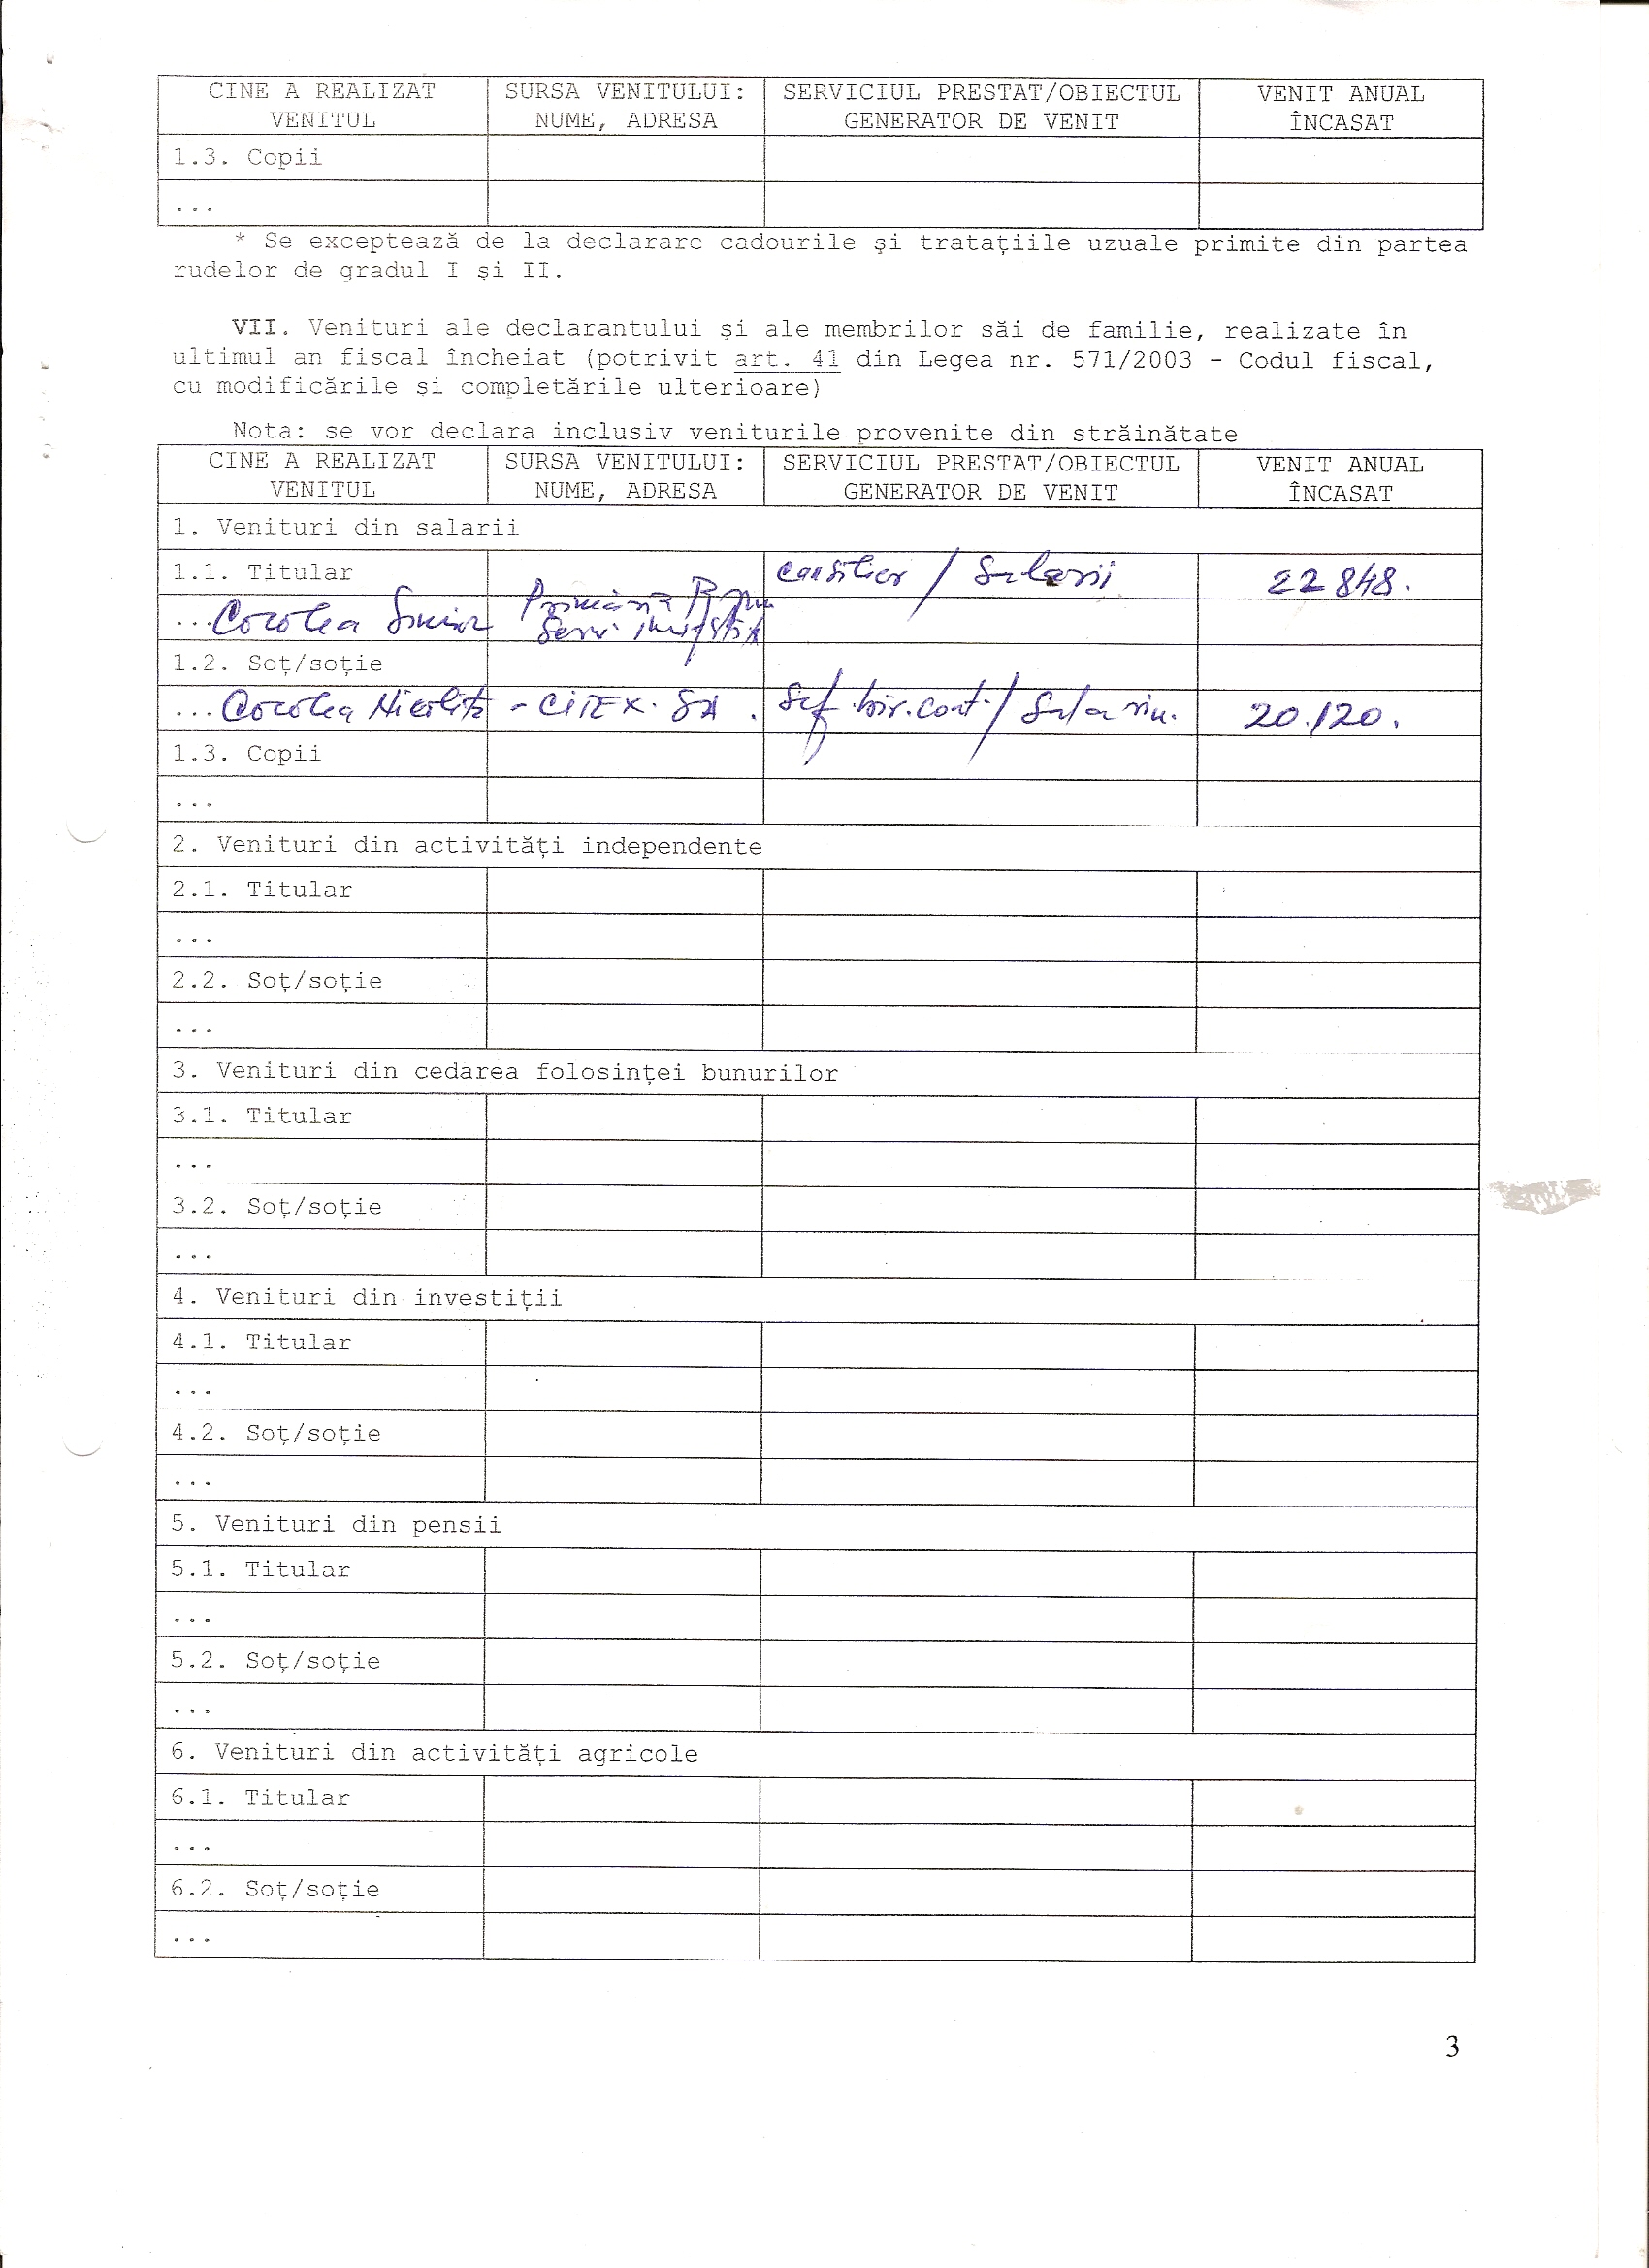 CINE A REALIZAT VENITUL SURSA VENITULUI: NUME, ADRESA SERVICIUL PRESTAT/OBIECTUL GENERATOR DE VENIT VENIT ANUAL ÎNCASAT
1.3. Copii
...
* Se exceptează de la declarare cadourile şi trataţiile uzuale primite din partea
rudelor de gradul I şi II.
VII. Venituri ale declarantului şi ale membrilor săi de familie, realizate în
ultimul an fiscal încheiat (potrivit art. 41 din Legea nr. 571/2003 - Codul fiscal,
cu modificările si completările ulterioare)
Nota: se vor declara inclusiv veniturile provenite din străinătate
CINE A REALIZAT VENITUL SURSA VENITULUI: NUME, ADRESA SERVICIUL PRESTAT/OBIECTUL GENERATOR DE VENIT VENIT ANUAL ÎNCASAT
1. Venituri din salarii
1.1. Titular consilier / Salarii 22848.
... Cocolea Primăria
1.2. Soţ/soţie
... Cocolea - CITEX. SA. Sef bir. cont. / Salariu. 20.120.
1.3. Copii
...
2. Venituri din activităţi independente
2.1. Titular
...
2.2. Soţ/soţie
...
3. Venituri din cedarea folosinţei bunurilor
3.1. Titular
...
3.2. Soţ/soţie
...
4. Venituri din investiţii
4.1. Titular
...
4.2. Soţ/soţie
...
5. Venituri din pensii
5.1. Titular
...
5.2. Soţ/soţie
...
6. Venituri din activităţi agricole
6.1. Titular
...
6.2. Soţ/soţie
...
3